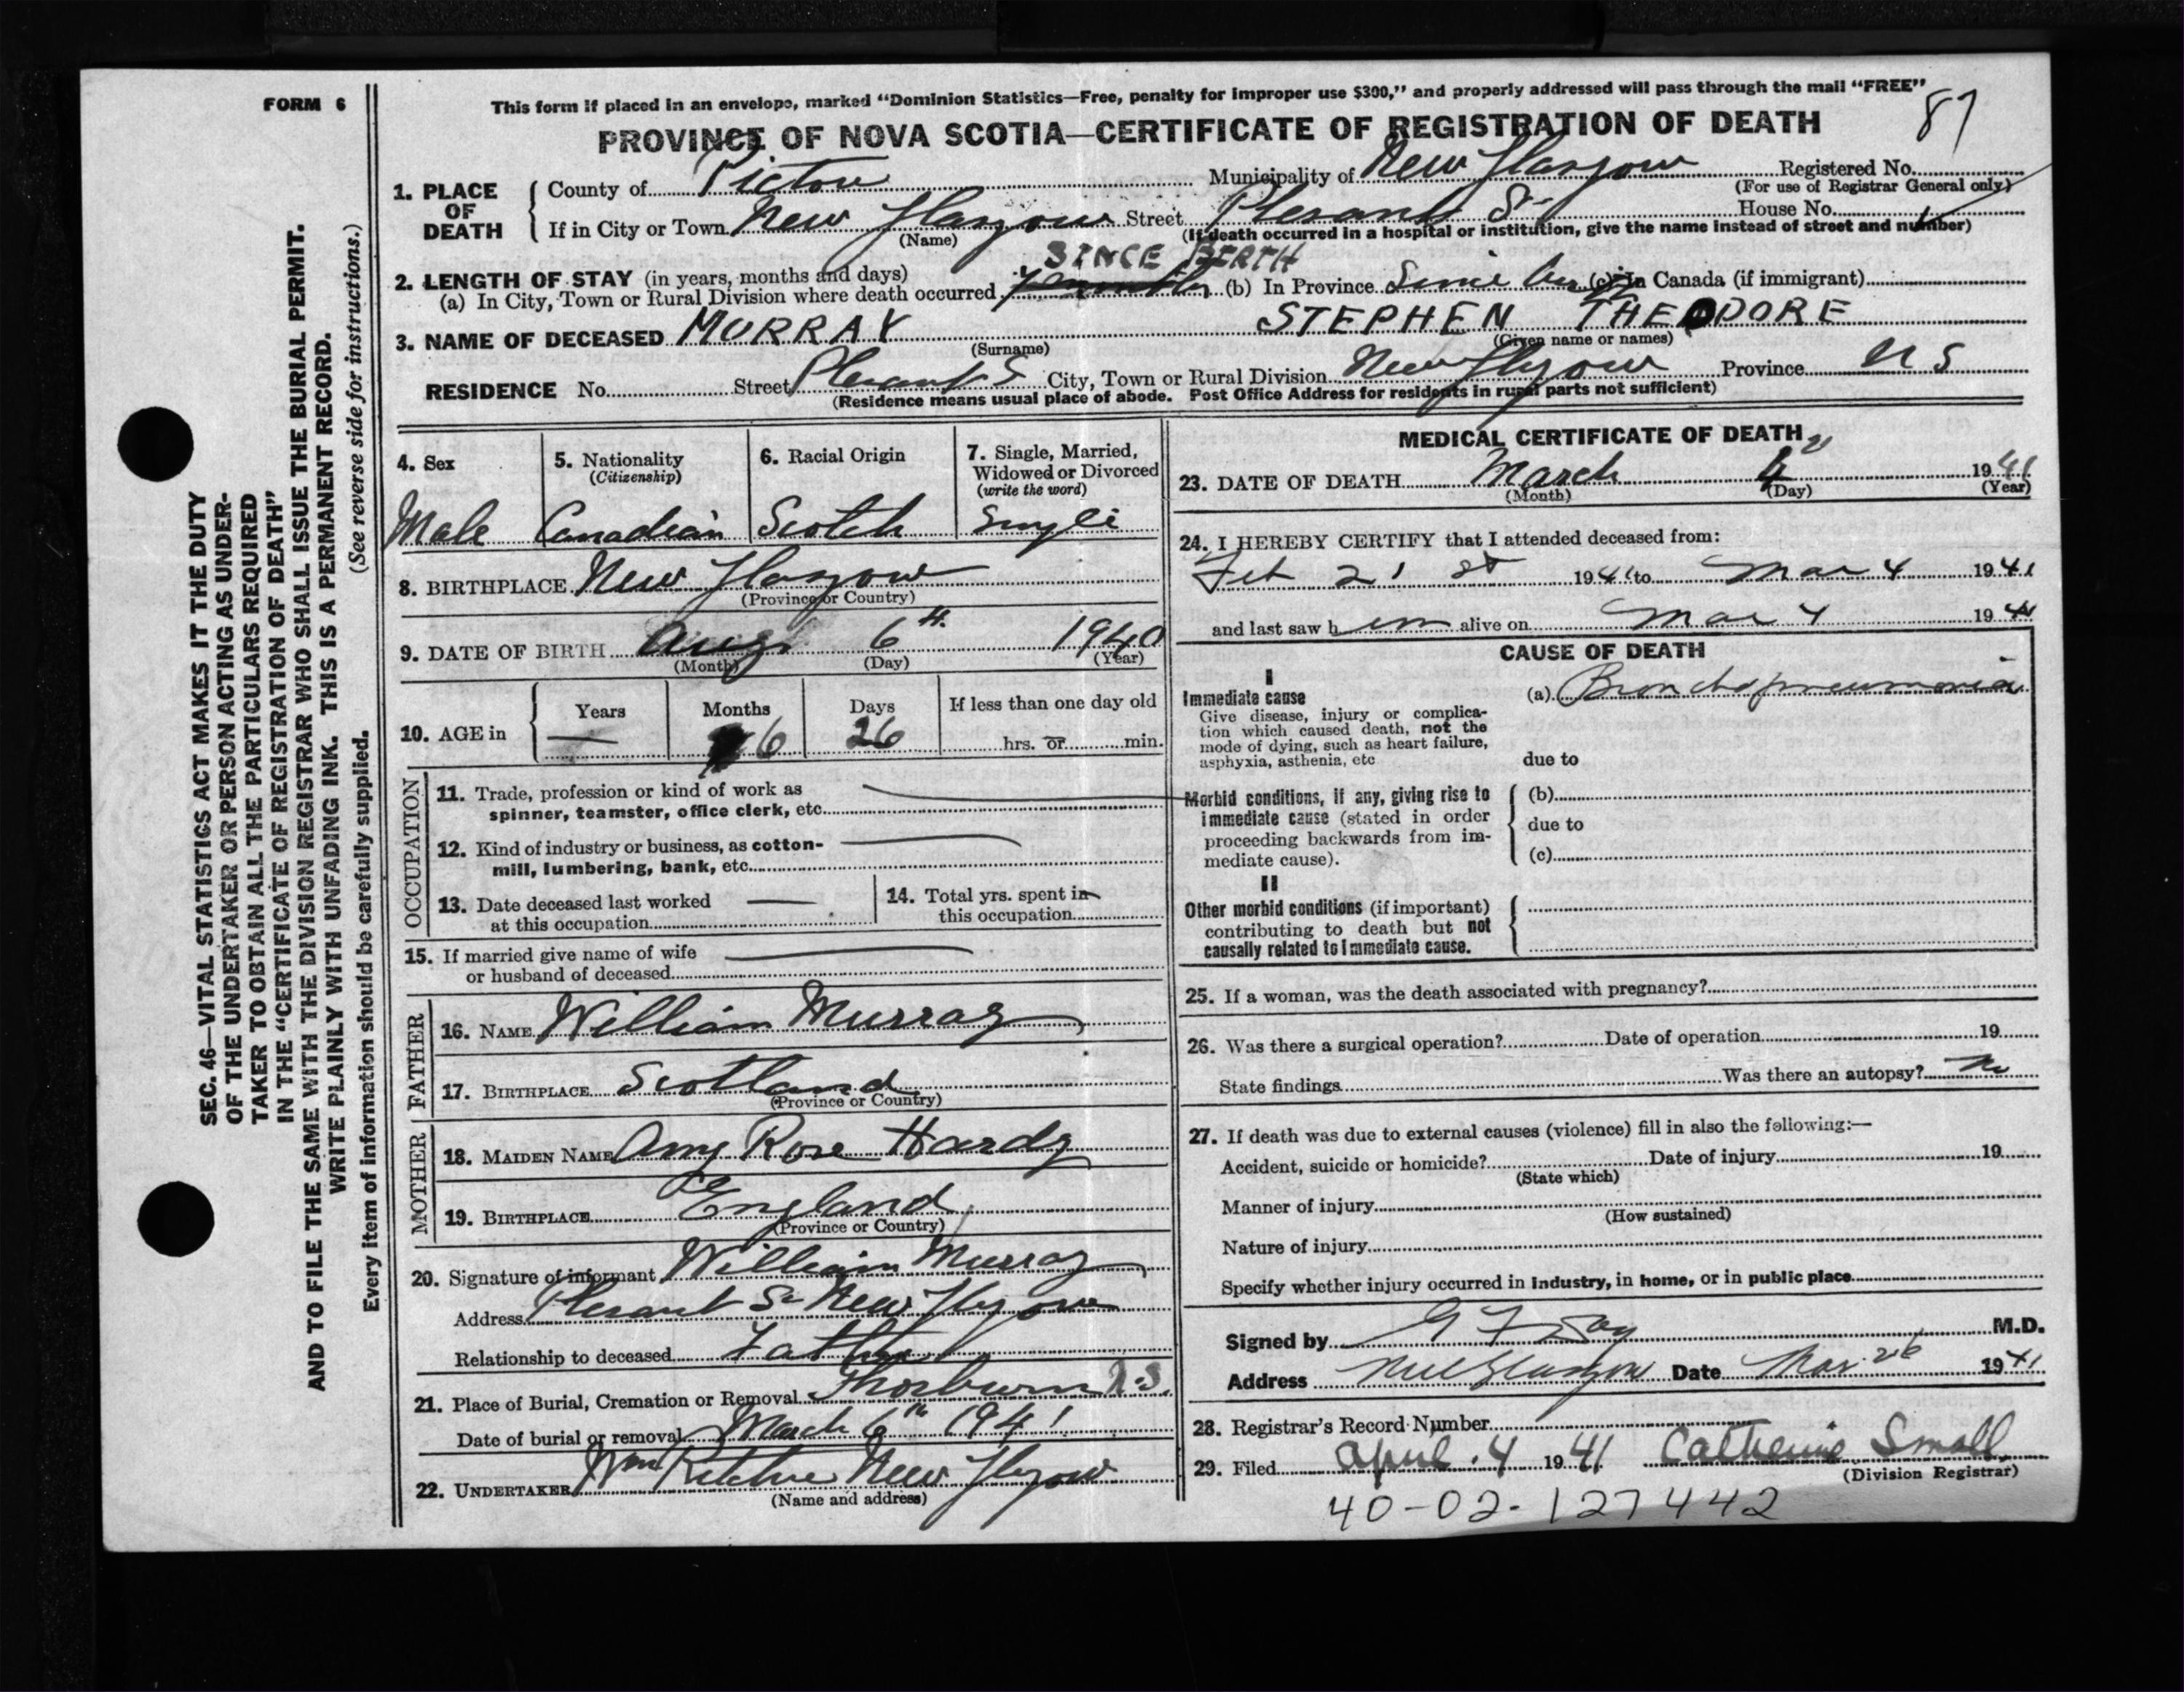 FORM 6
This form if placed in an envelope, marked "Dominion Statistics—Free, penalty for improper use $300," and properly addressed will pass through the mail "FREE"
87
PROVINCE OF NOVA SCOTIA—CERTIFICATE OF REGISTRATION OF DEATH
1. PLACE OF DEATH
County of Pictou Municipality of New Glasgow Registered No.
(For use of Registrar General only)
If in City or Town New Glasgow Street Plesant St House No.
(Name) (If death occurred in a hospital or institution, give the name instead of street and number)
SINCE BIRTH
2. LENGTH OF STAY (in years, months and days)
(a) In City, Town or Rural Division where death occurred 7 months (b) In Province Since (c) In Canada (if immigrant)
3. NAME OF DECEASED MURRAY STEPHEN THEODORE
(Surname) (Given name or names)
RESIDENCE No. Street Plesant S City, Town or Rural Division New Glasgow Province N S
(Residence means usual place of abode. Post Office Address for residents in rural parts not sufficient)
4. Sex
Male
5. Nationality
(Citizenship)
Canadian
6. Racial Origin
Scotch
7. Single, Married,
Widowed or Divorced
(write the word)
Single
8. BIRTHPLACE New Glasgow
(Province or Country)
9. DATE OF BIRTH Aug 6th 1940
(Month) (Day) (Year)
10. AGE in
Years Months Days If less than one day old
— 6 26 hrs. or min.
OCCUPATION
11. Trade, profession or kind of work as
spinner, teamster, office clerk, etc.
12. Kind of industry or business, as cotton-
mill, lumbering, bank, etc.
13. Date deceased last worked
at this occupation
14. Total yrs. spent in
this occupation
15. If married give name of wife
or husband of deceased
FATHER
16. NAME William Murray
17. BIRTHPLACE Scotland
(Province or Country)
MOTHER
18. MAIDEN NAME Amy Rose Hardy
19. BIRTHPLACE England
(Province or Country)
20. Signature of informant William Murray
Address Plesant St New Glasgow
Relationship to deceased Father
21. Place of Burial, Cremation or Removal Thorburn N.S.
Date of burial or removal March 6th 1941
22. UNDERTAKER Wm Ritchie New Glasgow
(Name and address)
MEDICAL CERTIFICATE OF DEATH
23. DATE OF DEATH March 4 1941
(Month) (Day) (Year)
24. I HEREBY CERTIFY that I attended deceased from:
Feb 21st 1941 to Mar 4 1941
and last saw him alive on Mar 4 1941
CAUSE OF DEATH
I
Immediate cause
Give disease, injury or complica-
tion which caused death, not the
mode of dying, such as heart failure,
asphyxia, asthenia, etc
(a) Bronchopneumonia
due to
Morbid conditions, if any, giving rise to
immediate cause (stated in order
proceeding backwards from im-
mediate cause).
(b)
due to
(c)
II
Other morbid conditions (if important)
contributing to death but not
causally related to immediate cause.
25. If a woman, was the death associated with pregnancy?
26. Was there a surgical operation? Date of operation 19
State findings Was there an autopsy? No
27. If death was due to external causes (violence) fill in also the following:—
Accident, suicide or homicide? Date of injury 19
(State which)
Manner of injury
(How sustained)
Nature of injury
Specify whether injury occurred in industry, in home, or in public place
Signed by G F Day M.D.
Address New Glasgow Date Mar 26 1941
28. Registrar's Record Number
29. Filed April 4 1941 Catherine Small
(Division Registrar)
40-02-127442
SEC. 46—VITAL STATISTICS ACT MAKES IT THE DUTY
OF THE UNDERTAKER OR PERSON ACTING AS UNDER-
TAKER TO OBTAIN ALL THE PARTICULARS REQUIRED
IN THE "CERTIFICATE OF REGISTRATION OF DEATH"
AND TO FILE THE SAME WITH THE DIVISION REGISTRAR WHO SHALL ISSUE THE BURIAL PERMIT.
WRITE PLAINLY WITH UNFADING INK. THIS IS A PERMANENT RECORD.
Every item of information should be carefully supplied. (See reverse side for instructions.)